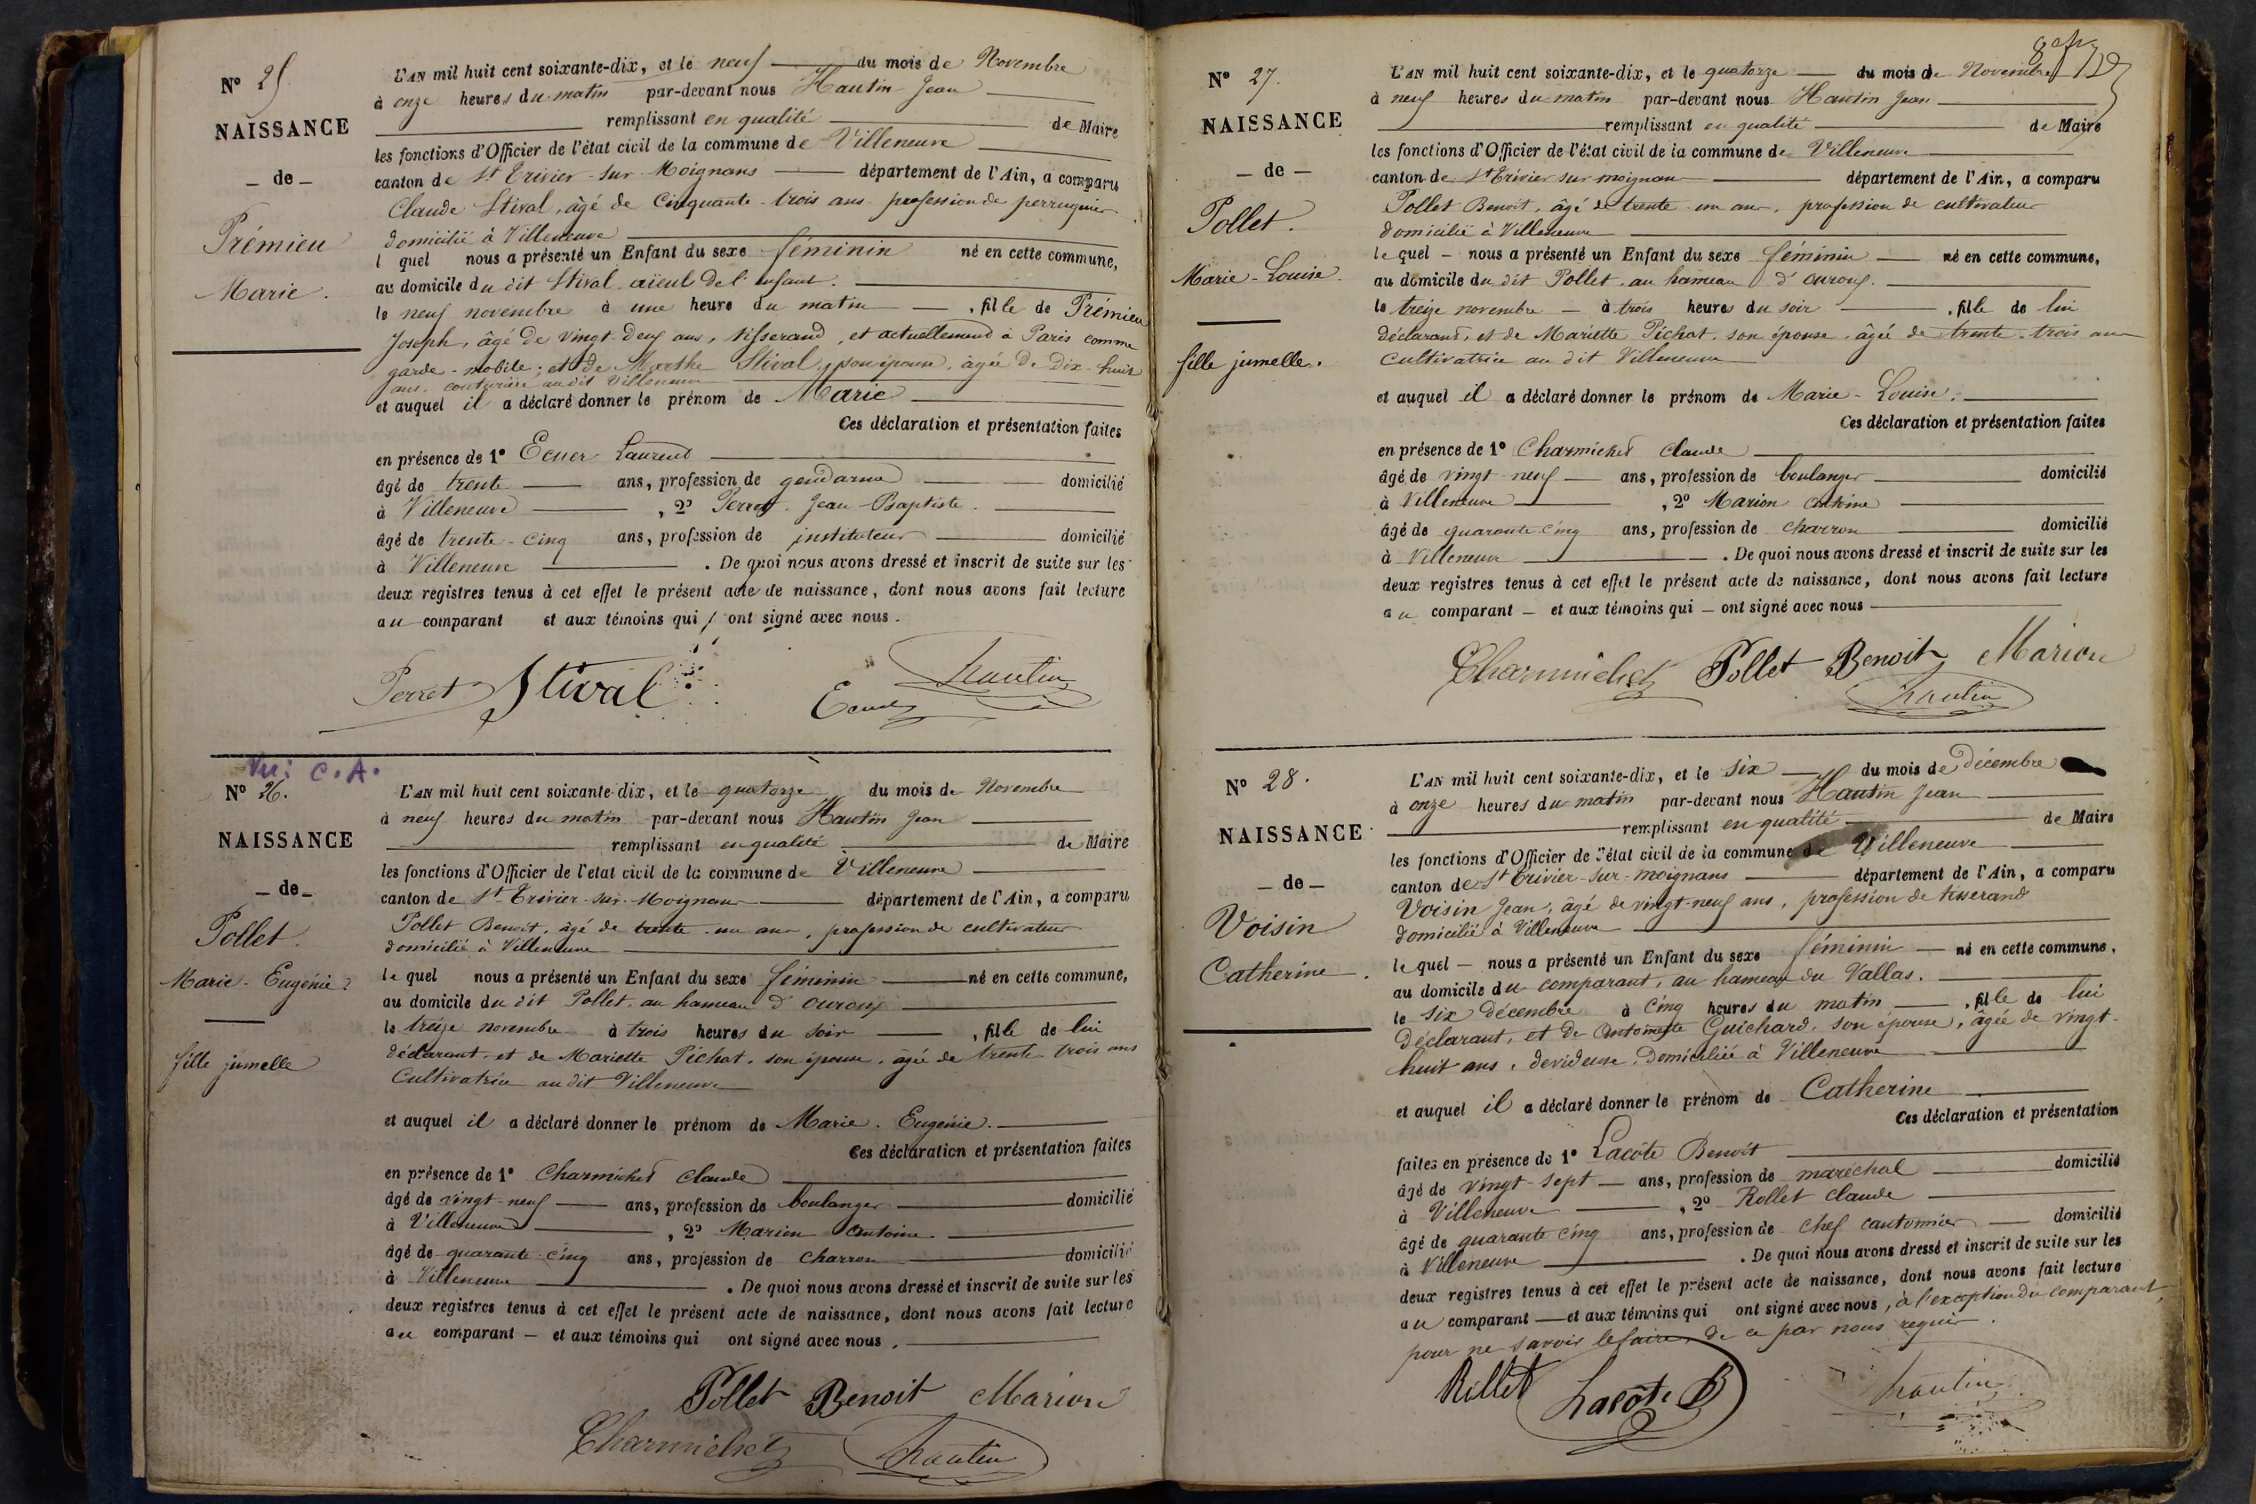 Nº 25
NAISSANCE
— de —
Prémieu
Marie.
L'AN mil huit cent soixante-dix, et le neuf du mois de Novembre
à onze heures du matin par-devant nous Hautin Jean
remplissant en qualité de Maire
les fonctions d'Officier de l'état civil de la commune de Villeneuve
canton de St Trivier-sur-Moignans département de l'Ain, a comparu
Claude Stival, âgé de cinquante-trois ans profession de perruquier
domicilié à Villeneuve
l quel nous a présenté un Enfant du sexe féminin né en cette commune,
au domicile du dit Stival aïeul de l'enfant.
le neuf novembre à une heure du matin, fille de Prémieu
Joseph, âgé de vingt-deux ans, tisserand, et actuellement à Paris comme
garde-mobile; et de Marthe Stival, son épouse, âgée de dix-huit
ans, couturière au dit Villeneuve
et auquel il a déclaré donner le prénom de Marie
Ces déclaration et présentation faites
en présence de 1º Ecuer Laurent
âgé de trente ans, profession de gendarme domicilié
à Villeneuve, 2º Perret Jean-Baptiste.
âgé de trente-cinq ans, profession de instituteur domicilié
à Villeneuve. De quoi nous avons dressé et inscrit de suite sur les
deux registres tenus à cet effet le présent acte de naissance, dont nous avons fait lecture
au comparant et aux témoins qui ont signé avec nous.
Perret Stival Ecuer Hautin
Vu: C.A.
Nº 26.
NAISSANCE
— de —
Pollet.
Marie-Eugénie
fille jumelle
L'AN mil huit cent soixante-dix, et le quatorze du mois de Novembre
à neuf heures du matin par-devant nous Hautin Jean
remplissant en qualité de Maire
les fonctions d'Officier de l'état civil de la commune de Villeneuve
canton de St Trivier-sur-Moignans département de l'Ain, a comparu
Pollet Benoit, âgé de trente-un ans, profession de cultivateur
domicilié à Villeneuve
le quel nous a présenté un Enfant du sexe féminin né en cette commune,
au domicile du dit Pollet, au hameau d'ouroux
le treize novembre à trois heures du soir, fille de lui
déclarant, et de Mariette Pichat, son épouse, âgée de trente-trois ans
Cultivatrice au dit Villeneuve
et auquel il a déclaré donner le prénom de Marie-Eugénie.
Ces déclaration et présentation faites
en présence de 1º Charmichet Claude
âgé de vingt-neuf ans, profession de boulanger domicilié
à Villeneuve, 2º Marion Antoine
âgé de quarante-cinq ans, profession de charron domicilié
à Villeneuve. De quoi nous avons dressé et inscrit de suite sur les
deux registres tenus à cet effet le présent acte de naissance, dont nous avons fait lecture
au comparant — et aux témoins qui ont signé avec nous.
Pollet Benoit Marion
Charmichet Hautin
Nº 27.
NAISSANCE
— de —
Pollet.
Marie-Louise.
fille jumelle.
L'AN mil huit cent soixante-dix, et le quatorze du mois de Novembre
à neuf heures du matin par-devant nous Hautin Jean
remplissant en qualité de Maire
les fonctions d'Officier de l'état civil de la commune de Villeneuve
canton de St Trivier sur moignans département de l'Ain, a comparu
Pollet Benoit, âgé de trente-un ans, profession de cultivateur
domicilié à Villeneuve
le quel — nous a présenté un Enfant du sexe féminin — né en cette commune,
au domicile du dit Pollet, au hameau d'ouroux.
le treize novembre — à trois heures du soir, fille de lui
déclarant, et de Mariette Pichat, son épouse, âgée de trente-trois ans
Cultivatrice au dit Villeneuve
et auquel il a déclaré donner le prénom de Marie-Louise.
Ces déclaration et présentation faites
en présence de 1º Charmichet Claude
âgé de vingt-neuf — ans, profession de boulanger domicilié
à Villeneuve, 2º Marion Antoine
âgé de quarante-cinq ans, profession de charron domicilié
à Villeneuve. De quoi nous avons dressé et inscrit de suite sur les
deux registres tenus à cet effet le présent acte de naissance, dont nous avons fait lecture
au comparant — et aux témoins qui — ont signé avec nous
Charmichet Pollet Benoit Marion
Hautin
Nº 28.
NAISSANCE
— de —
Voisin
Catherine.
L'AN mil huit cent soixante-dix, et le six du mois de décembre
à onze heures du matin par-devant nous Hautin Jean
remplissant en qualité de Maire
les fonctions d'Officier de l'état civil de la commune de Villeneuve
canton de St Trivier-sur-moignans département de l'Ain, a comparu
Voisin Jean, âgé de vingt-neuf ans, profession de tisserand
domicilié à Villeneuve
le quel — nous a présenté un Enfant du sexe féminin — né en cette commune,
au domicile du comparant, au hameau du Vallas.
le six décembre à cinq heures du matin, fille de lui
déclarant, et de Antoinette Guichard, son épouse, âgée de vingt-
huit ans, devideuse, domiciliée à Villeneuve
et auquel il a déclaré donner le prénom de Catherine
Ces déclaration et présentation
faites en présence de 1º Lacôte Benoît
âgé de vingt-sept — ans, profession de maréchal domicilié
à Villeneuve, 2º Rollet Claude
âgé de quarante cinq ans, profession de chef cantonnier domicilié
à Villeneuve. De quoi nous avons dressé et inscrit de suite sur les
deux registres tenus à cet effet le présent acte de naissance, dont nous avons fait lecture
au comparant — et aux témoins qui ont signé avec nous, à l'exception du comparant,
pour ne savoir le faire, de ce par nous requis.
Rollet Lacôte B Hautin